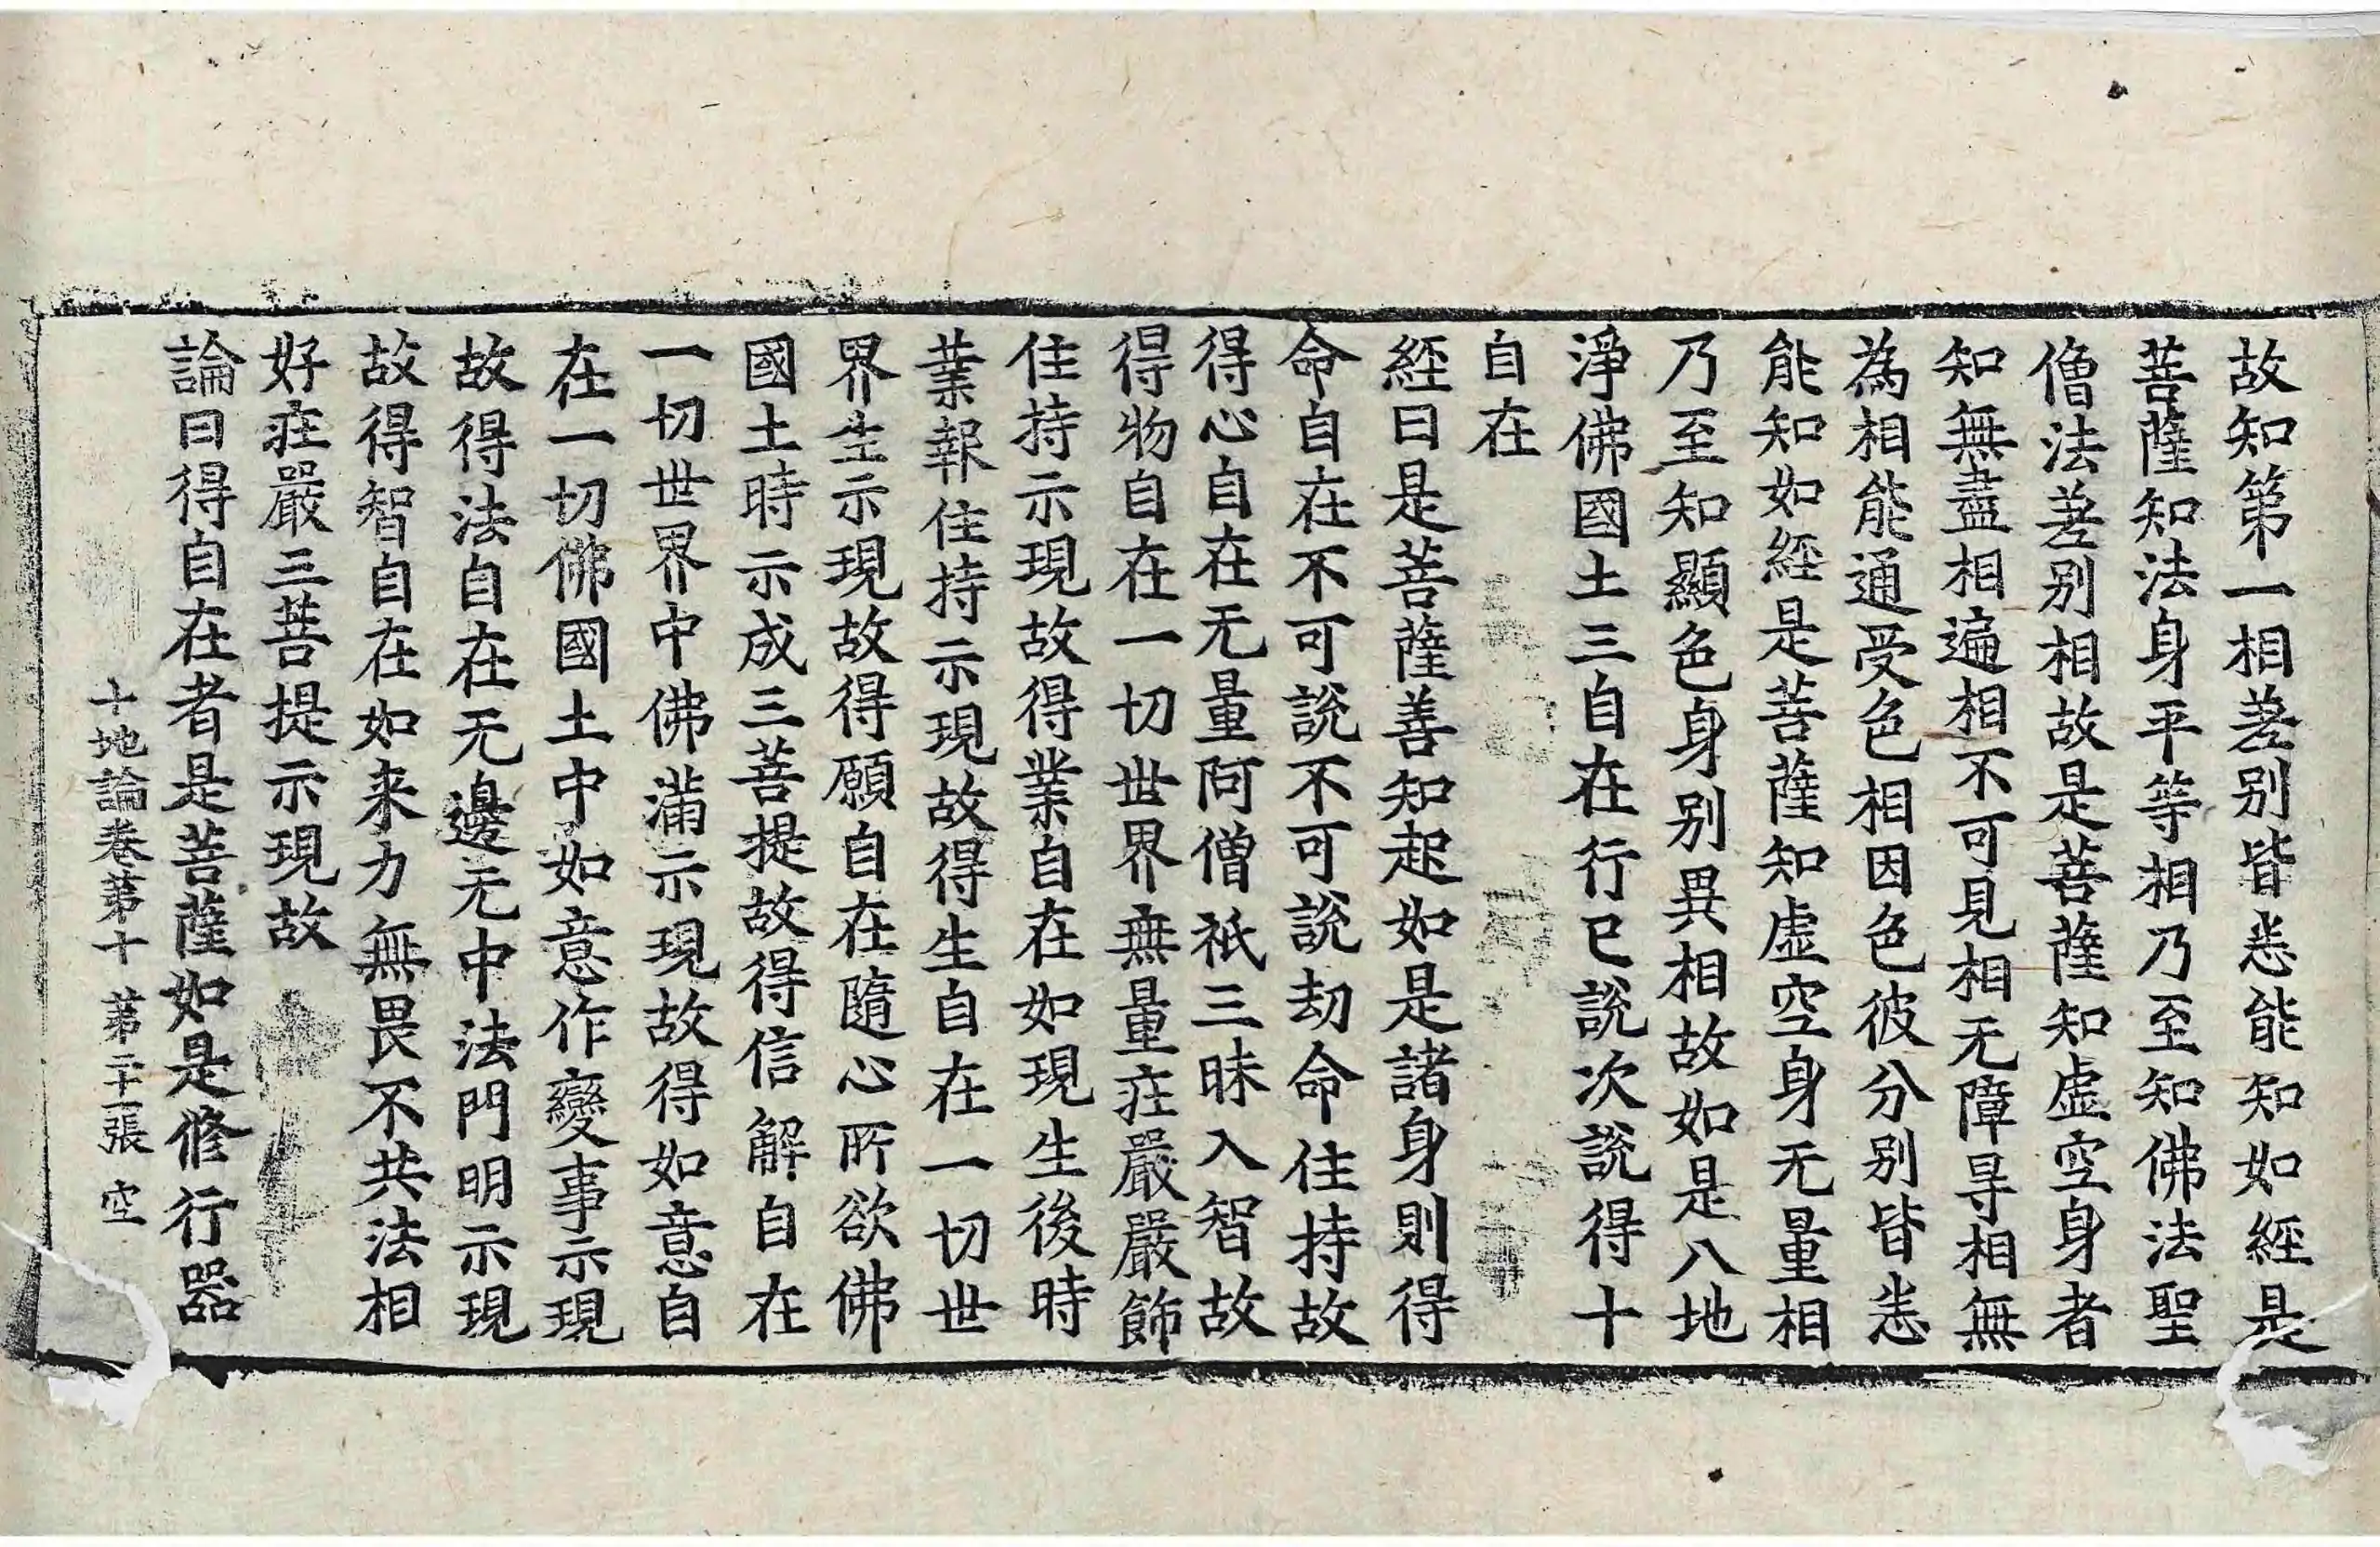 故知第一相差别皆悉能知如經是
菩薩知法身平等相乃至知佛法聖
僧法差别相故是菩薩知虚空身者
知無盡相遍相不可見相无障㝵相無
為相能通受色相因色彼分别皆悉
能知如經是菩薩知虚空身无量相
乃至知顯色身别異相故如是八地
淨佛國土三自在行已說次說得十
自在
經曰是菩薩善知起如是諸身則得
命自在不可說不可說劫命住持故
得心自在无量阿僧祇三昧入智故
得物自在一切世界無量庄嚴嚴飾
住持示現故得業自在如現生後時
業報住持示現故得生自在一切世
界生示現故得願自在隨心所欲佛
國土時示成三菩提故得信解自在
一切世界中佛滿示現故得如意自
在一切佛國土中如意作變事示現
故得法自在无邊无中法門明示現
故得智自在如来力無畏不共法相
好庄嚴三菩提示現故
論曰得自在者是菩薩如是修行器
十地論卷第十 第二十一張 空